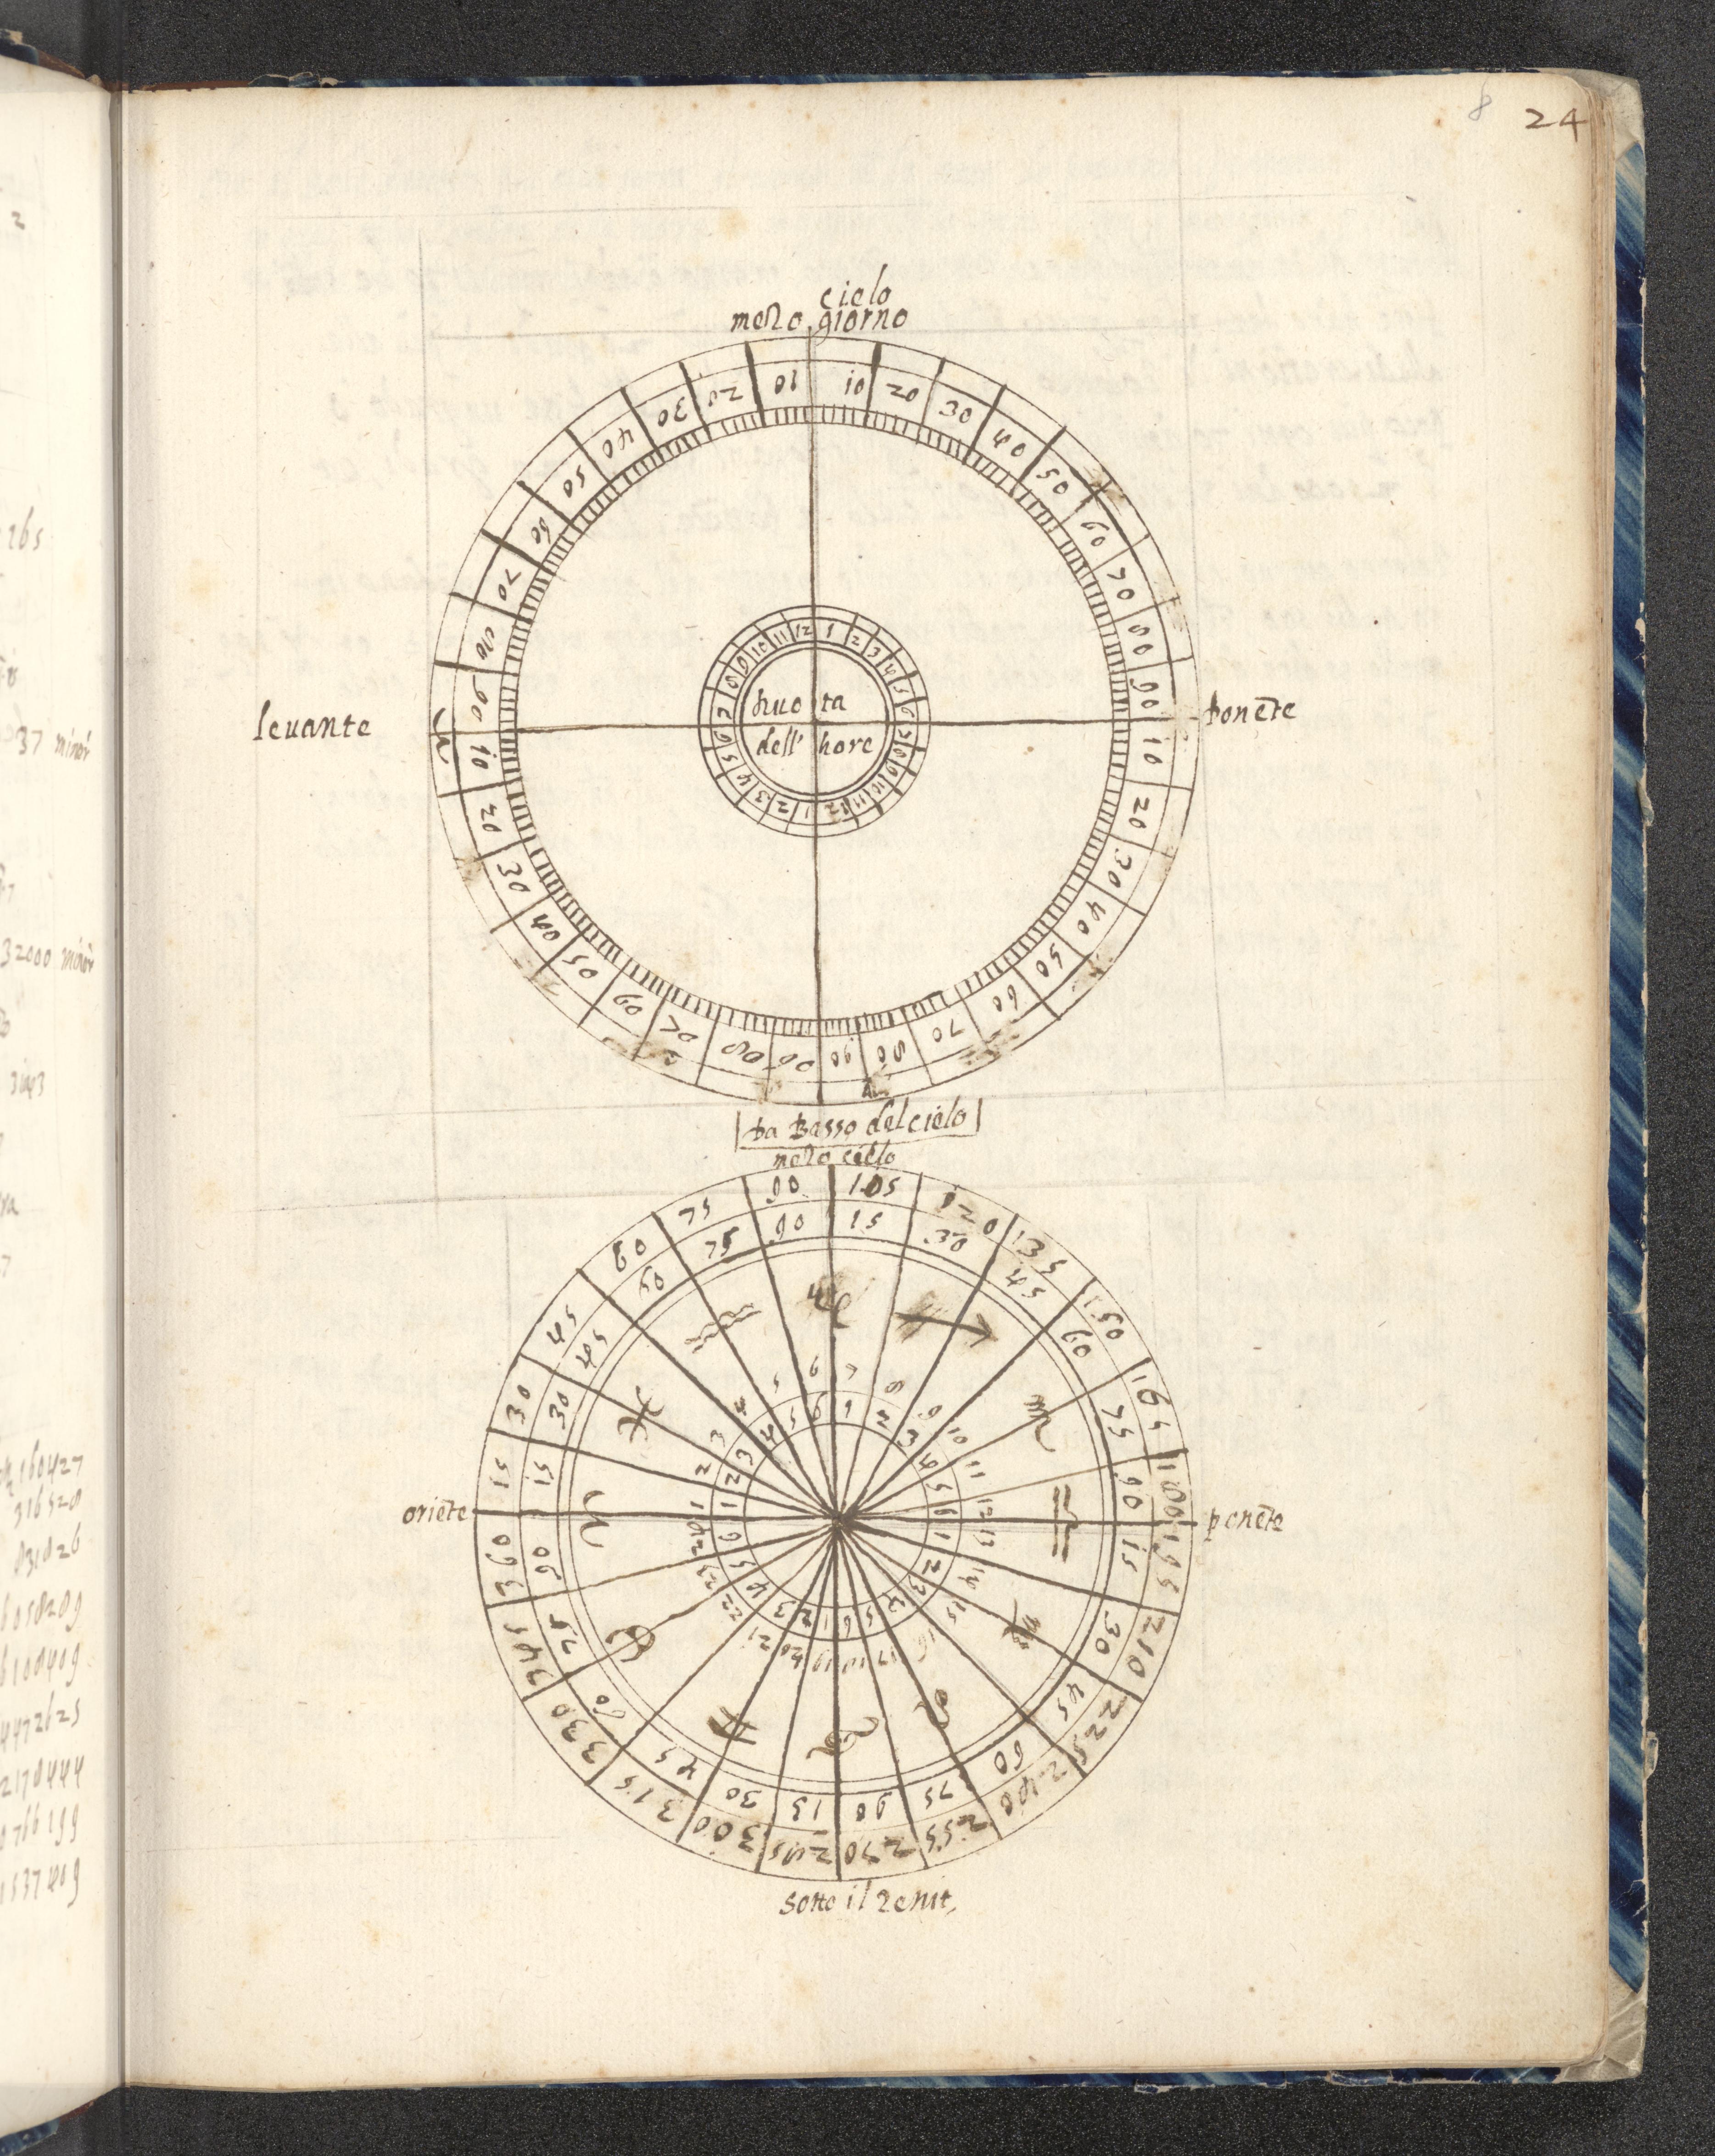 8 24
cielo
mezo giorno
10 20 30 40 50 60 70 80 90
10 20 30 40 50 60 70 80 90
90 80 70 60 50 40 30 20 10
10 20 30 40 50 60 70 80 90
1 2 3 4 5 6 7 8 9 10 11 12
1 2 3 4 5 6 7 8 9 10 11 12
levante
huota
dell' hore
ponēte
Da Basso del cielo
mezo cielo
15 30 45 60 75 90 105 120 135 150 165 180 195 210 225 240 255 270 300 315 330 345 360
15 30 45 60 75 90
15 30 45 60 75 90
15 30 45 60 75 90
15 30 45 75 90
♑ ♐ ♏ ♎ ♍ ♌ ♋ ♊ ♉ ♈ ♓ ♒
1 2 3 4 5 6
1 2 3 4 5 6
1 2 3 4 5 6
1 2 3 4 5 6
oriēte
ponēte
sotto il zenit,
265
37 minor
32000 minor
3143
160427
316520